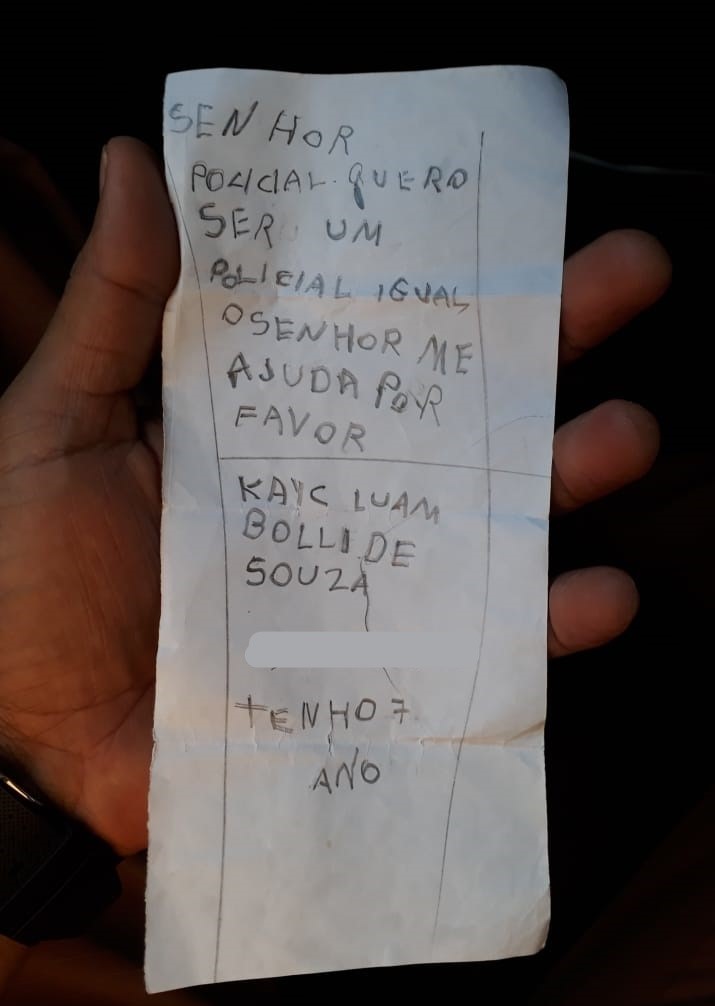 SENHOR
POLICIAL QUERO
SER UM
POLICIAL IGUAL
O SENHOR ME
AJUDA POR
FAVOR
KAYC LUAM
BOLLI DE
SOUZA
TENHO 7
ANO